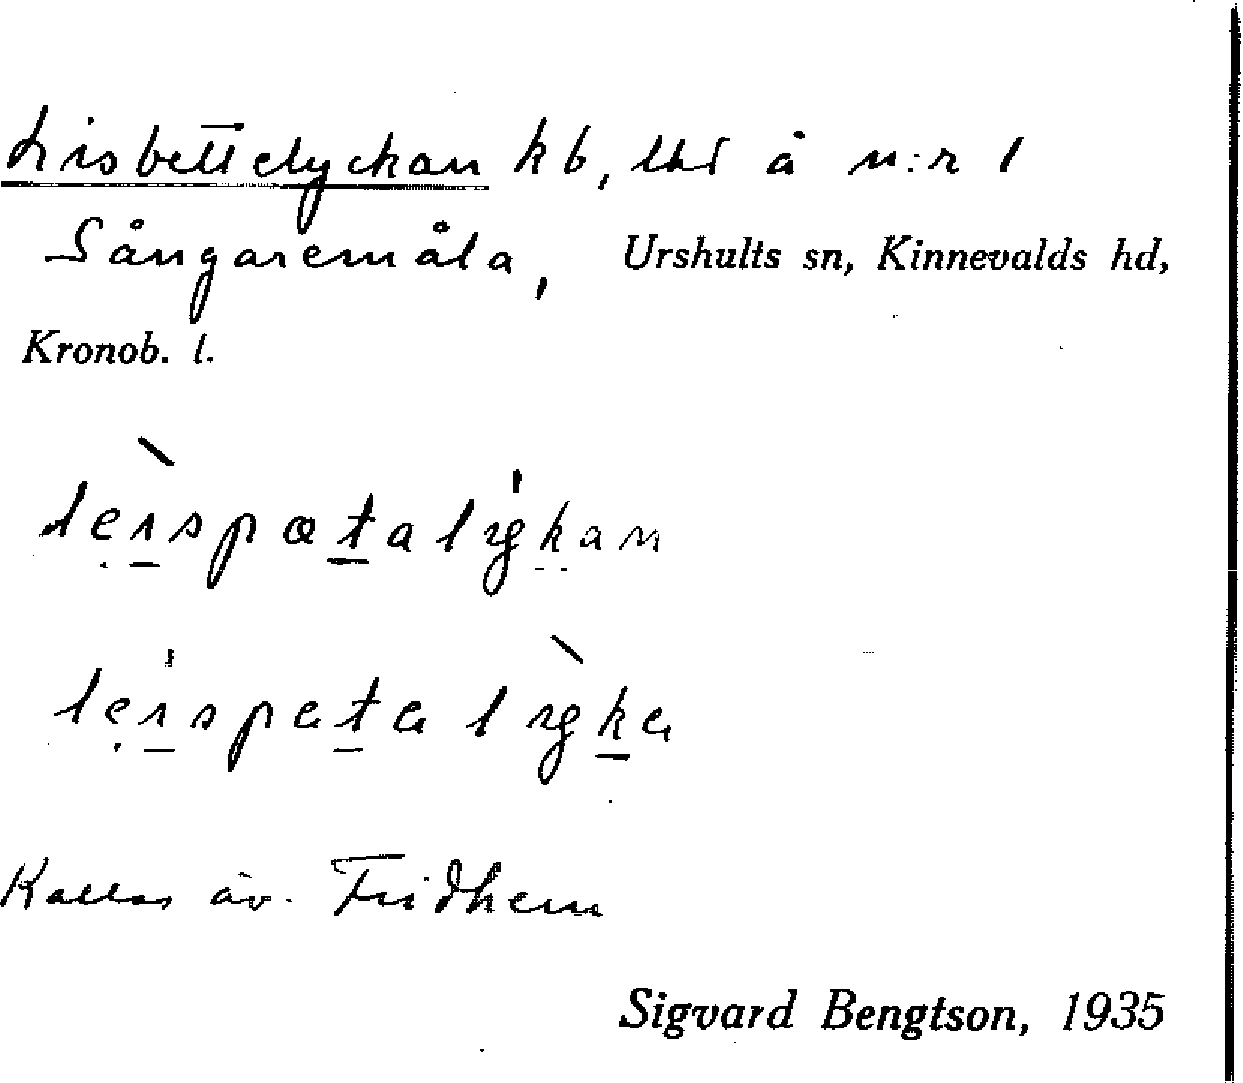 Lisbettelyckan kb, lht å n:r 1
Sångaremåla, Urshults sn, Kinnevalds hd,
Kronob. l.
leıspætalykan
leıspetalyka
Kallas äv. Fridhem
Sigvard Bengtson, 1935